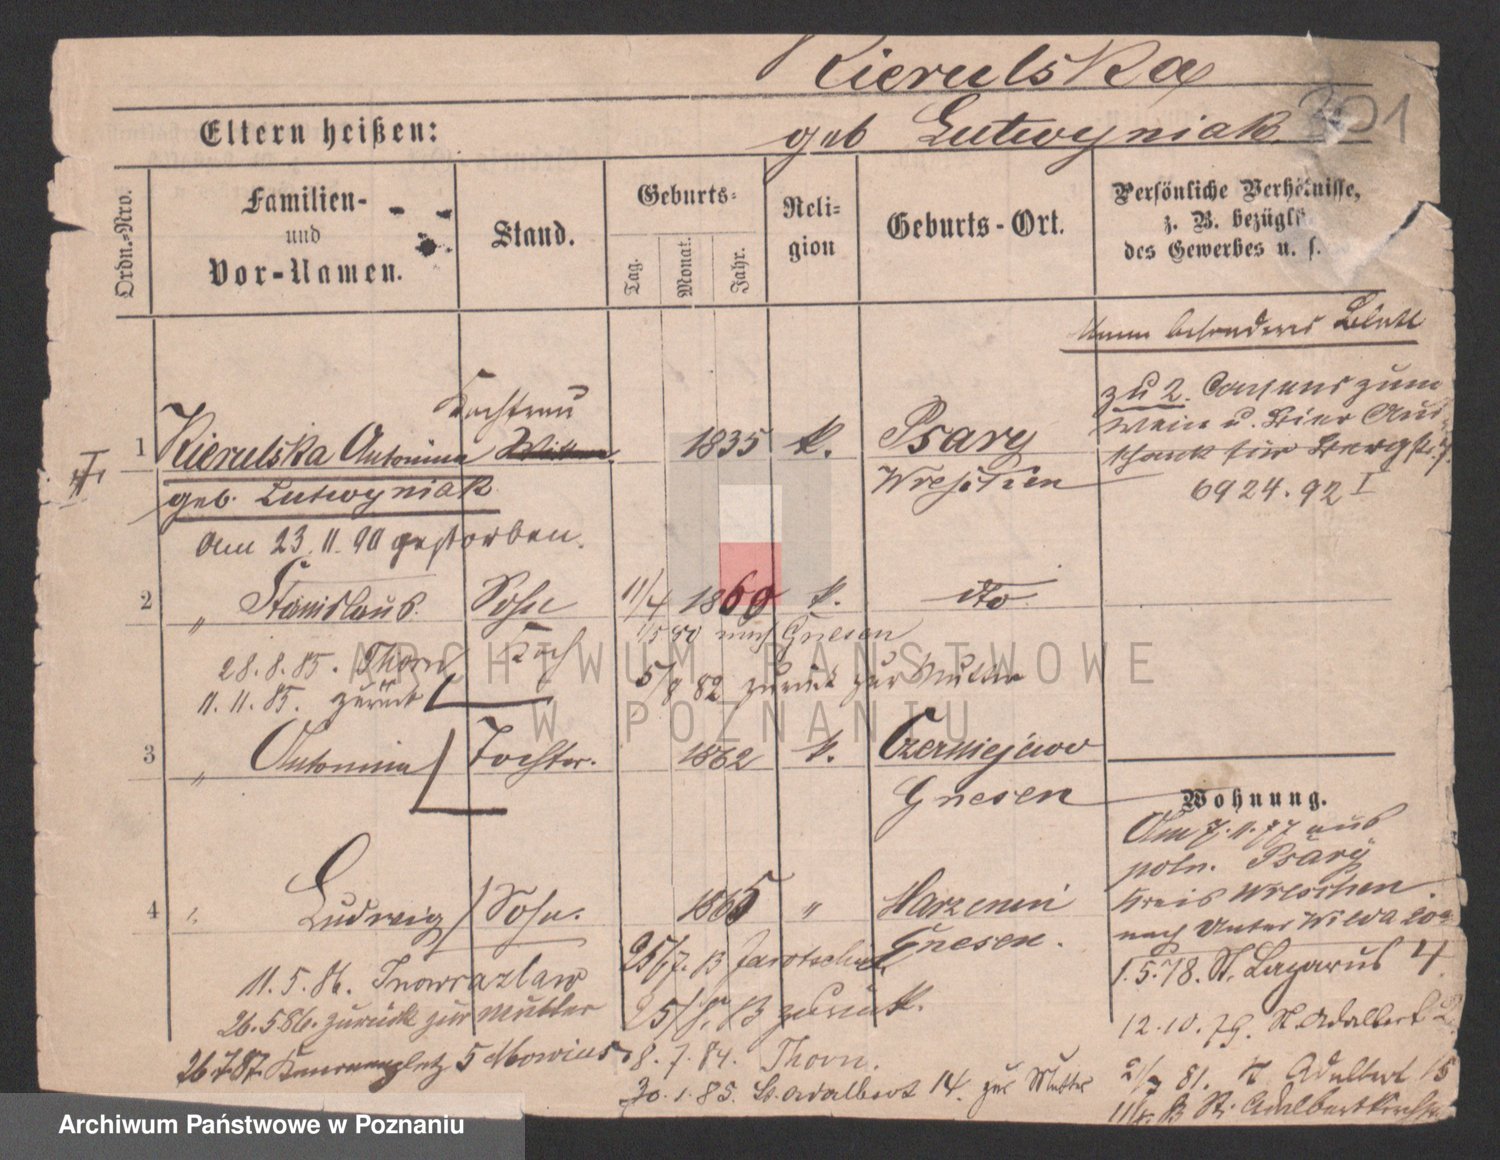 Kierulska
geb Lutwyniak
301
Eltern heißen:
Ordn.-Nro.
Familien-
und
Vor-Namen.
Stand.
Geburts-
Tag.
Monat.
Jahr.
Reli-
gion
Geburts-Ort.
Persönliche Verhältnisse,
z. B. bezügl
des Gewerbes u. s.
besonderes Blatt
1
Kierulska Antonina
geb. Lutwyniak
Am 23.11.90 gestorben.
Kochfrau
1835
k.
Psary
Wreschen
zu 2. Consens zum
Wein u. Bier Aus-
schank für Bergstr. 7.
6924.92 I
2
" Stanislaus
Sohn
11/4
1860
k.
dto
Koch
1/5 80 nach Gnesen
5/8 82 zurück zur Mutter
28.8.85. Thorn
11.11.85. zurück
3
" Antonina
Tochter.
1862
k.
Czerniejewo
Gnesen
Wohnung.
Am 7.11.77 aus
poln. Psary
Kreis Wreschen
nach Unter Wilda
1.5.78. St. Lazarus 4
12.10.79. St. Adalbert
2/7 81. St. Adalbert 15
St. Adalbertkirchstr
4
Ludwig
Sohn.
1865
"
Harzewi
Gnesen.
25/7. 83 Jarotschin
25/8. 83 zurück.
11.5.86. Inowrazlaw
26.5.86. zurück zur Mutter
26.7.87. 5 Mowius
8.7.84. Thorn.
30.1.85. St. Adalbert 14. zur Mutter
ARCHIWUM PAŃSTWOWE
W POZNANIU
Archiwum Państwowe w Poznaniu